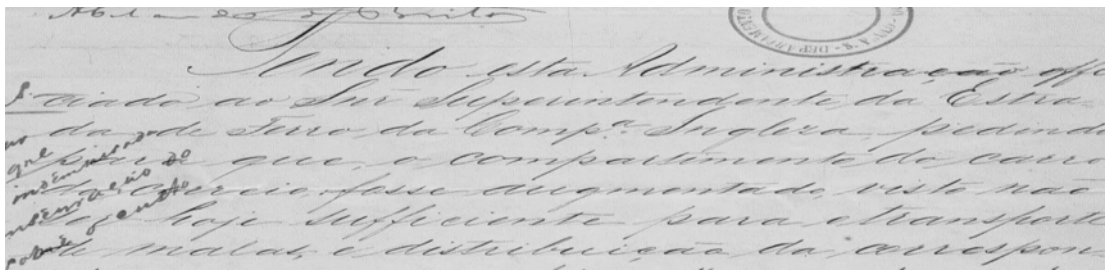 Tendo esta Administração offi
ciado ao Snr Superintendente da Estra
da de Ferro da Comp.ª Ingleza, pedindo
para que, o compartimento do carro
do correio, fosse augmentado, visto não
ser hoje sufficiente para o transporte
de malas, e distribuição da correspon